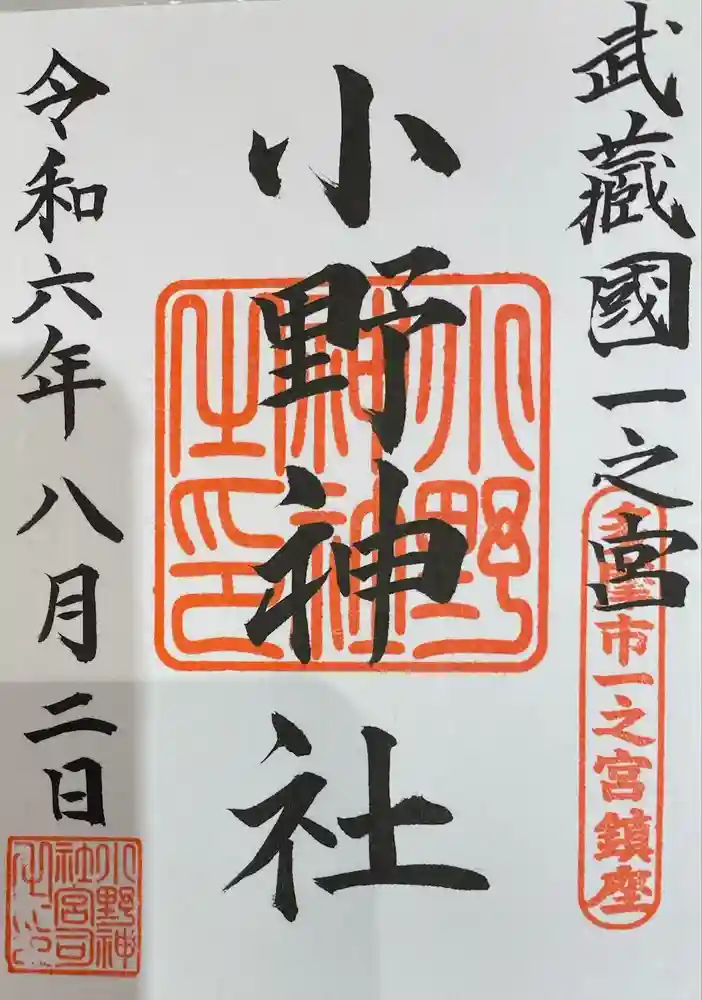 武藏國一之宮
多摩市一之宮鎮座
小野神社
小野神社之印
令和六年八月二日
小野神社宮司之印